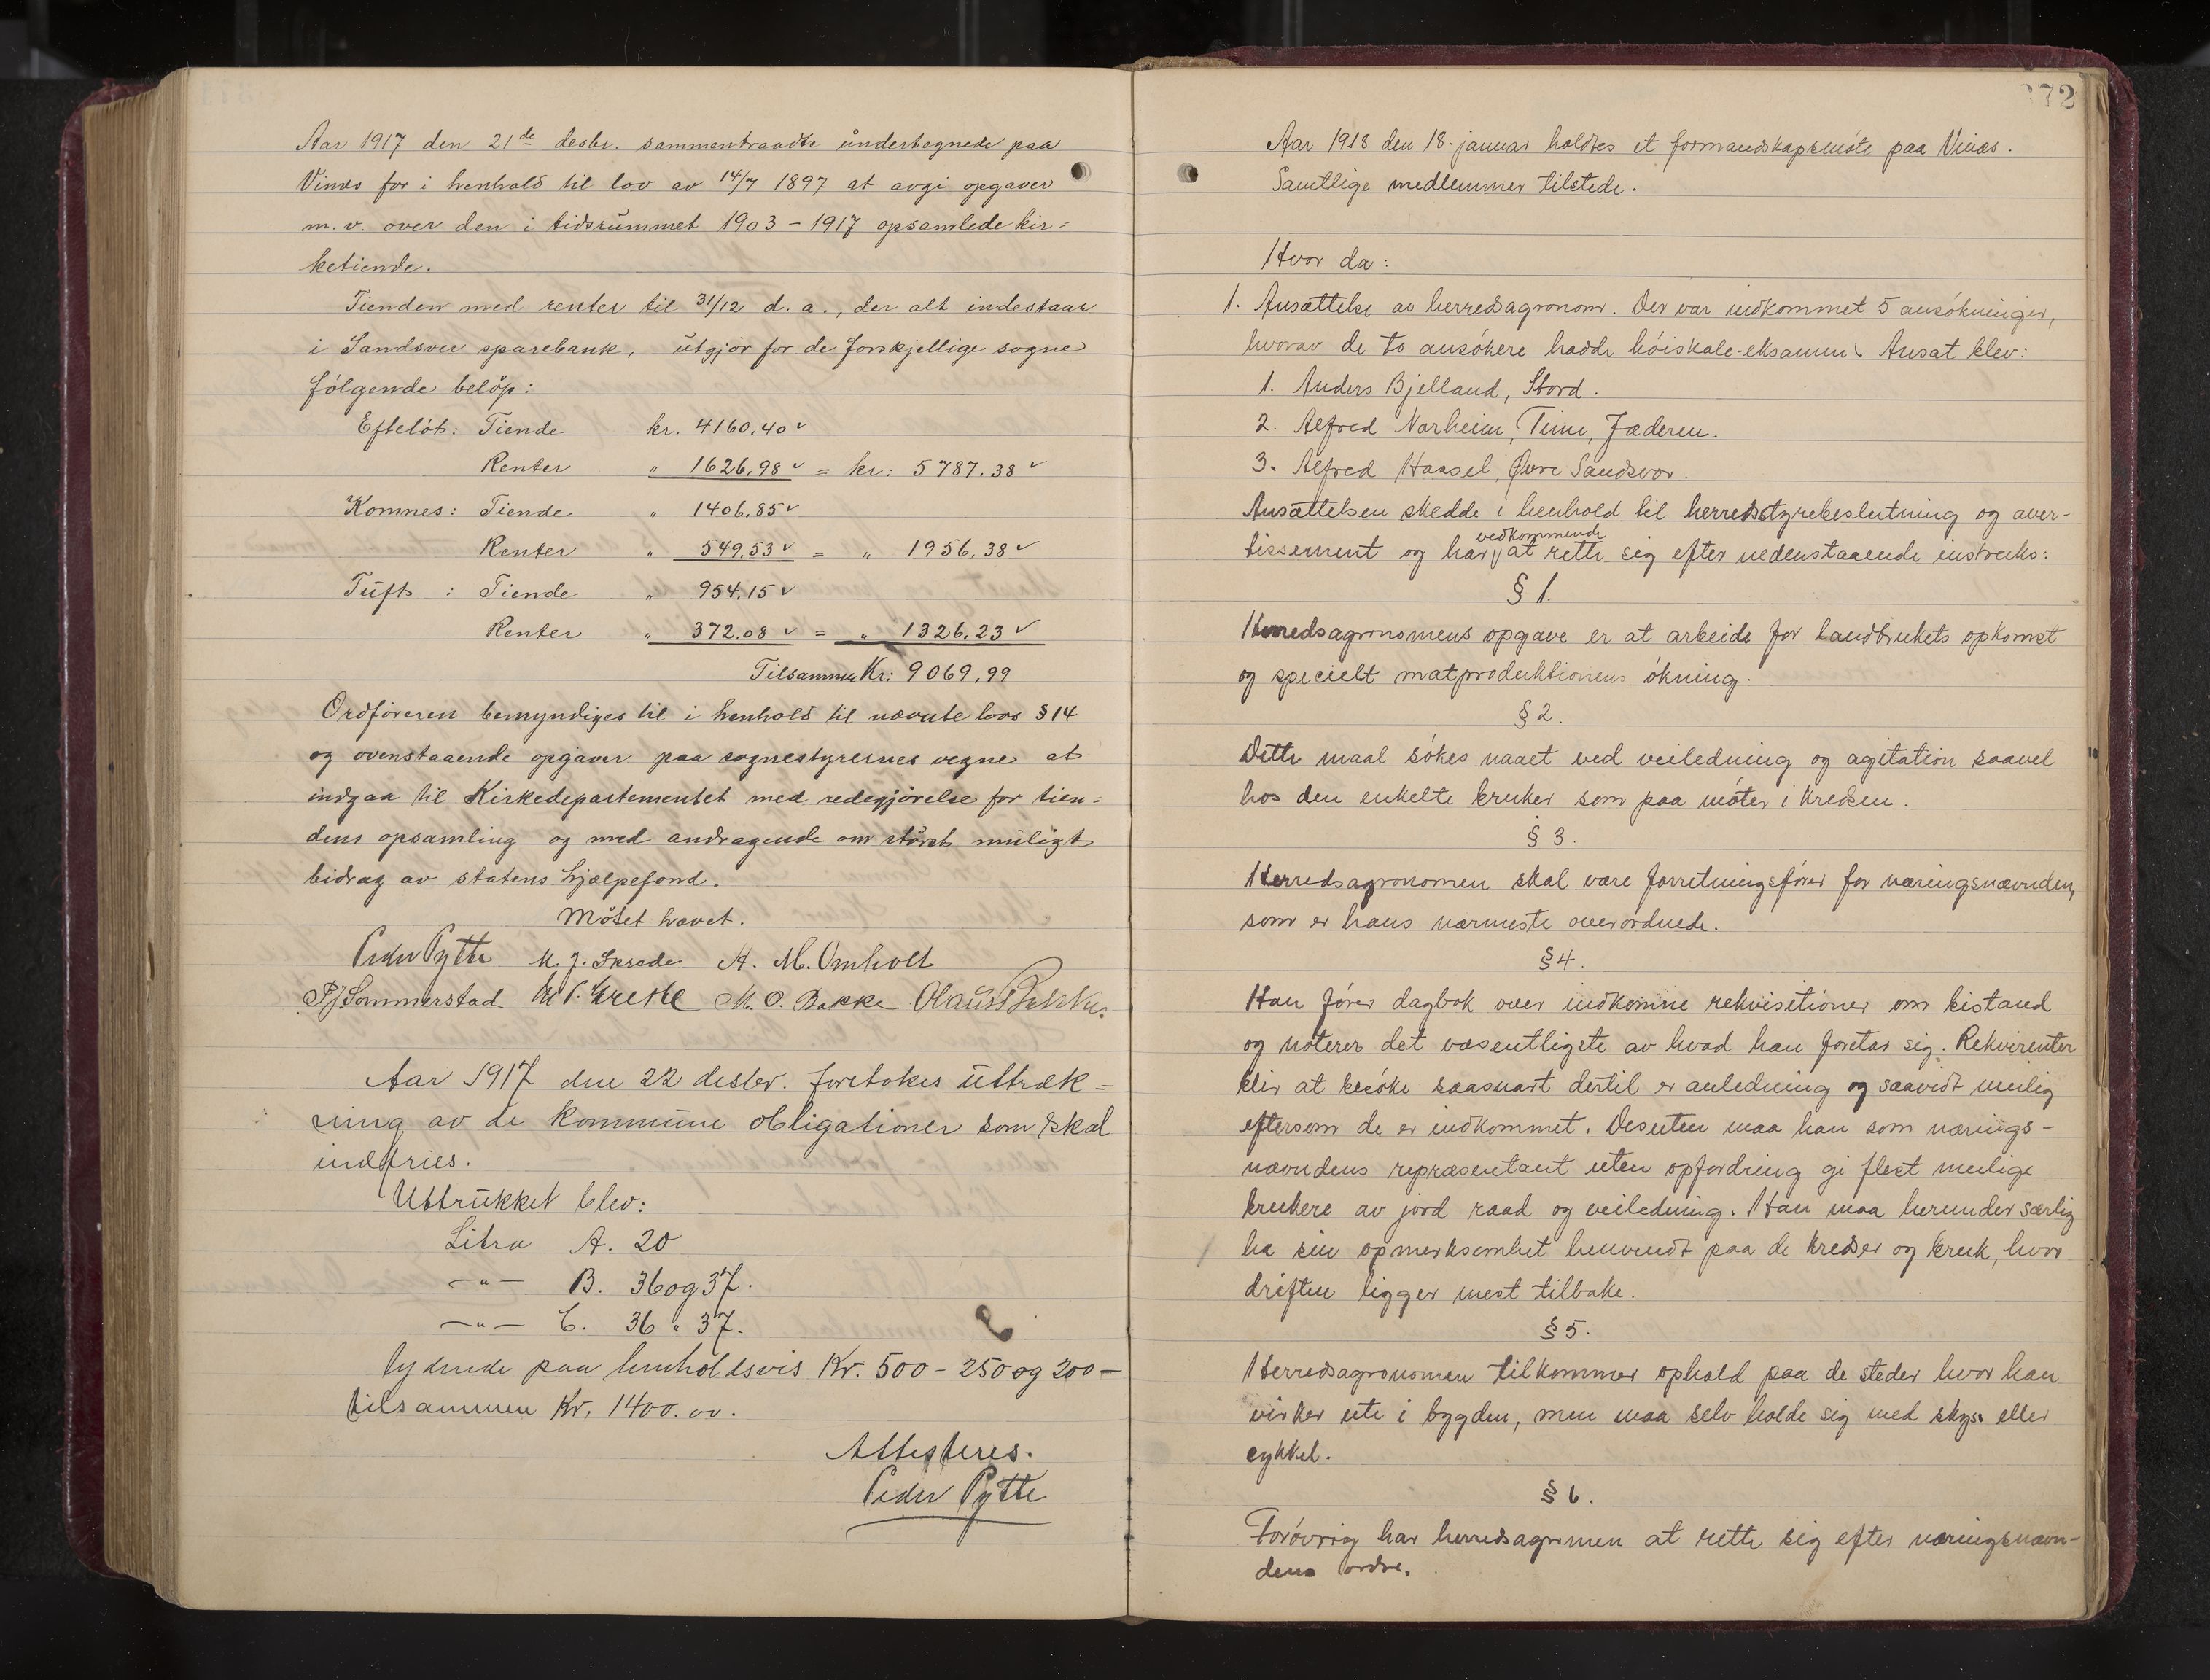 Aar 1917 den 21de desbr. sammentraadte undertegnede paa
Vinæs for i henhold til lov av 14/7 1897 at avgi opgaver
m.v. over den i tidsrummet 1903 – 1917 opsamlede kir=
ketiende.
Tienden med renter til 31/12 d.a., der alt indestaar
i Sandsver sparebank, utgjör for de forskjellige sogne
fölgende belöp:
Eftelöt: Tiende kr. 4160.40
Renter " 1626.98 = kr: 5787.38
Komnes: Tiende " 1406.85
Renter " 549.53 = " 1956.38
Tuft : Tiende " 954.15
Renter " 372.08 = " 1326.23
Tilsammen Kr: 9069,99
Ordföreren bemyndiges til i henhold til nævnte lovs § 14
og ovenstaaende opgaver paa sognestyrernes vegne at
indgaa til Kirkedepartementet med redegjörelse for tien=
dens opsamling og med andragende om störst muligt
bidrag av statens hjælpefond.
Mötet hævet.
Peder Pytte M. J. Skrede A. M. Omholt
P J Sommerstad M. O. Bakke
Aar 1917 den 22 desbr. foretokes uttræk=
ning av de kommune obligationer som skal
indfries.
Uttrukket blev:
Litra A. 20
–"– B. 36 og 37.
–"– C. 36 " 37.
lydende paa henholdsvis Kr. 500 – 250 og 200 –
tilsammen Kr. 1400.00.
Attesteres.
Peder Pytte
372
Aar 1918 den 18. januar holdtes et formandskapsmöte paa Vinæs.
Samtlige medlemmer tilstede.
Hvor da:
1. Ansættelse av herredsagronom. Der var indkommet 5 ansökninger,
hvorav de to ansökere hadde höiskole-eksamen. Ansat blev:
1. Anders Bjelland, Stord.
2. Alfred Norheim, Time, Jæderen.
3. Alfred Haasel, Øvre Sandsver.
Ansættelsen skedde i henhold til herredsstyrebeslutning og aver-
tissement og har vedkommende at rette sig efter nedenstaaende instruks:
§ 1.
Herredsagronomens opgave er at arbeide for landbrukets opkomst
og specielt matproduktionens ökning.
§ 2.
Dette maal sökes naaet ved veiledning og agitation saavel
hos den enkelte bruker som paa möter i kredsen.
§ 3.
Herredsagronomen skal være forretningsförer for næringsnævnden,
som er hans nærmeste overordnede.
§ 4.
Han förer dagbok over indkomne rekvisitioner om bistand
og noterer det væsentligste av hvad han foretar sig. Rekvirenter
blir at besöke saasnart dertil er anledning og saavidt mulig
eftersom de er indkommet. Desuten maa han som nærings-
nævndens repræsentant uten opfordring gi flest mulige
brukere av jord raad og veiledning. Han maa herunder særlig
ha sin opmerksomhet henvendt paa de kredser og bruk, hvor
driften ligger mest tilbake.
§ 5.
Herredsagronomen tilkommer ophold paa de steder hvor han
virker ute i bygden, men maa selv holde sig med skyss eller
cykkel.
§ 6.
Forövrig har herredsagromen at rette sig efter næringsnævn-
dens ordre.